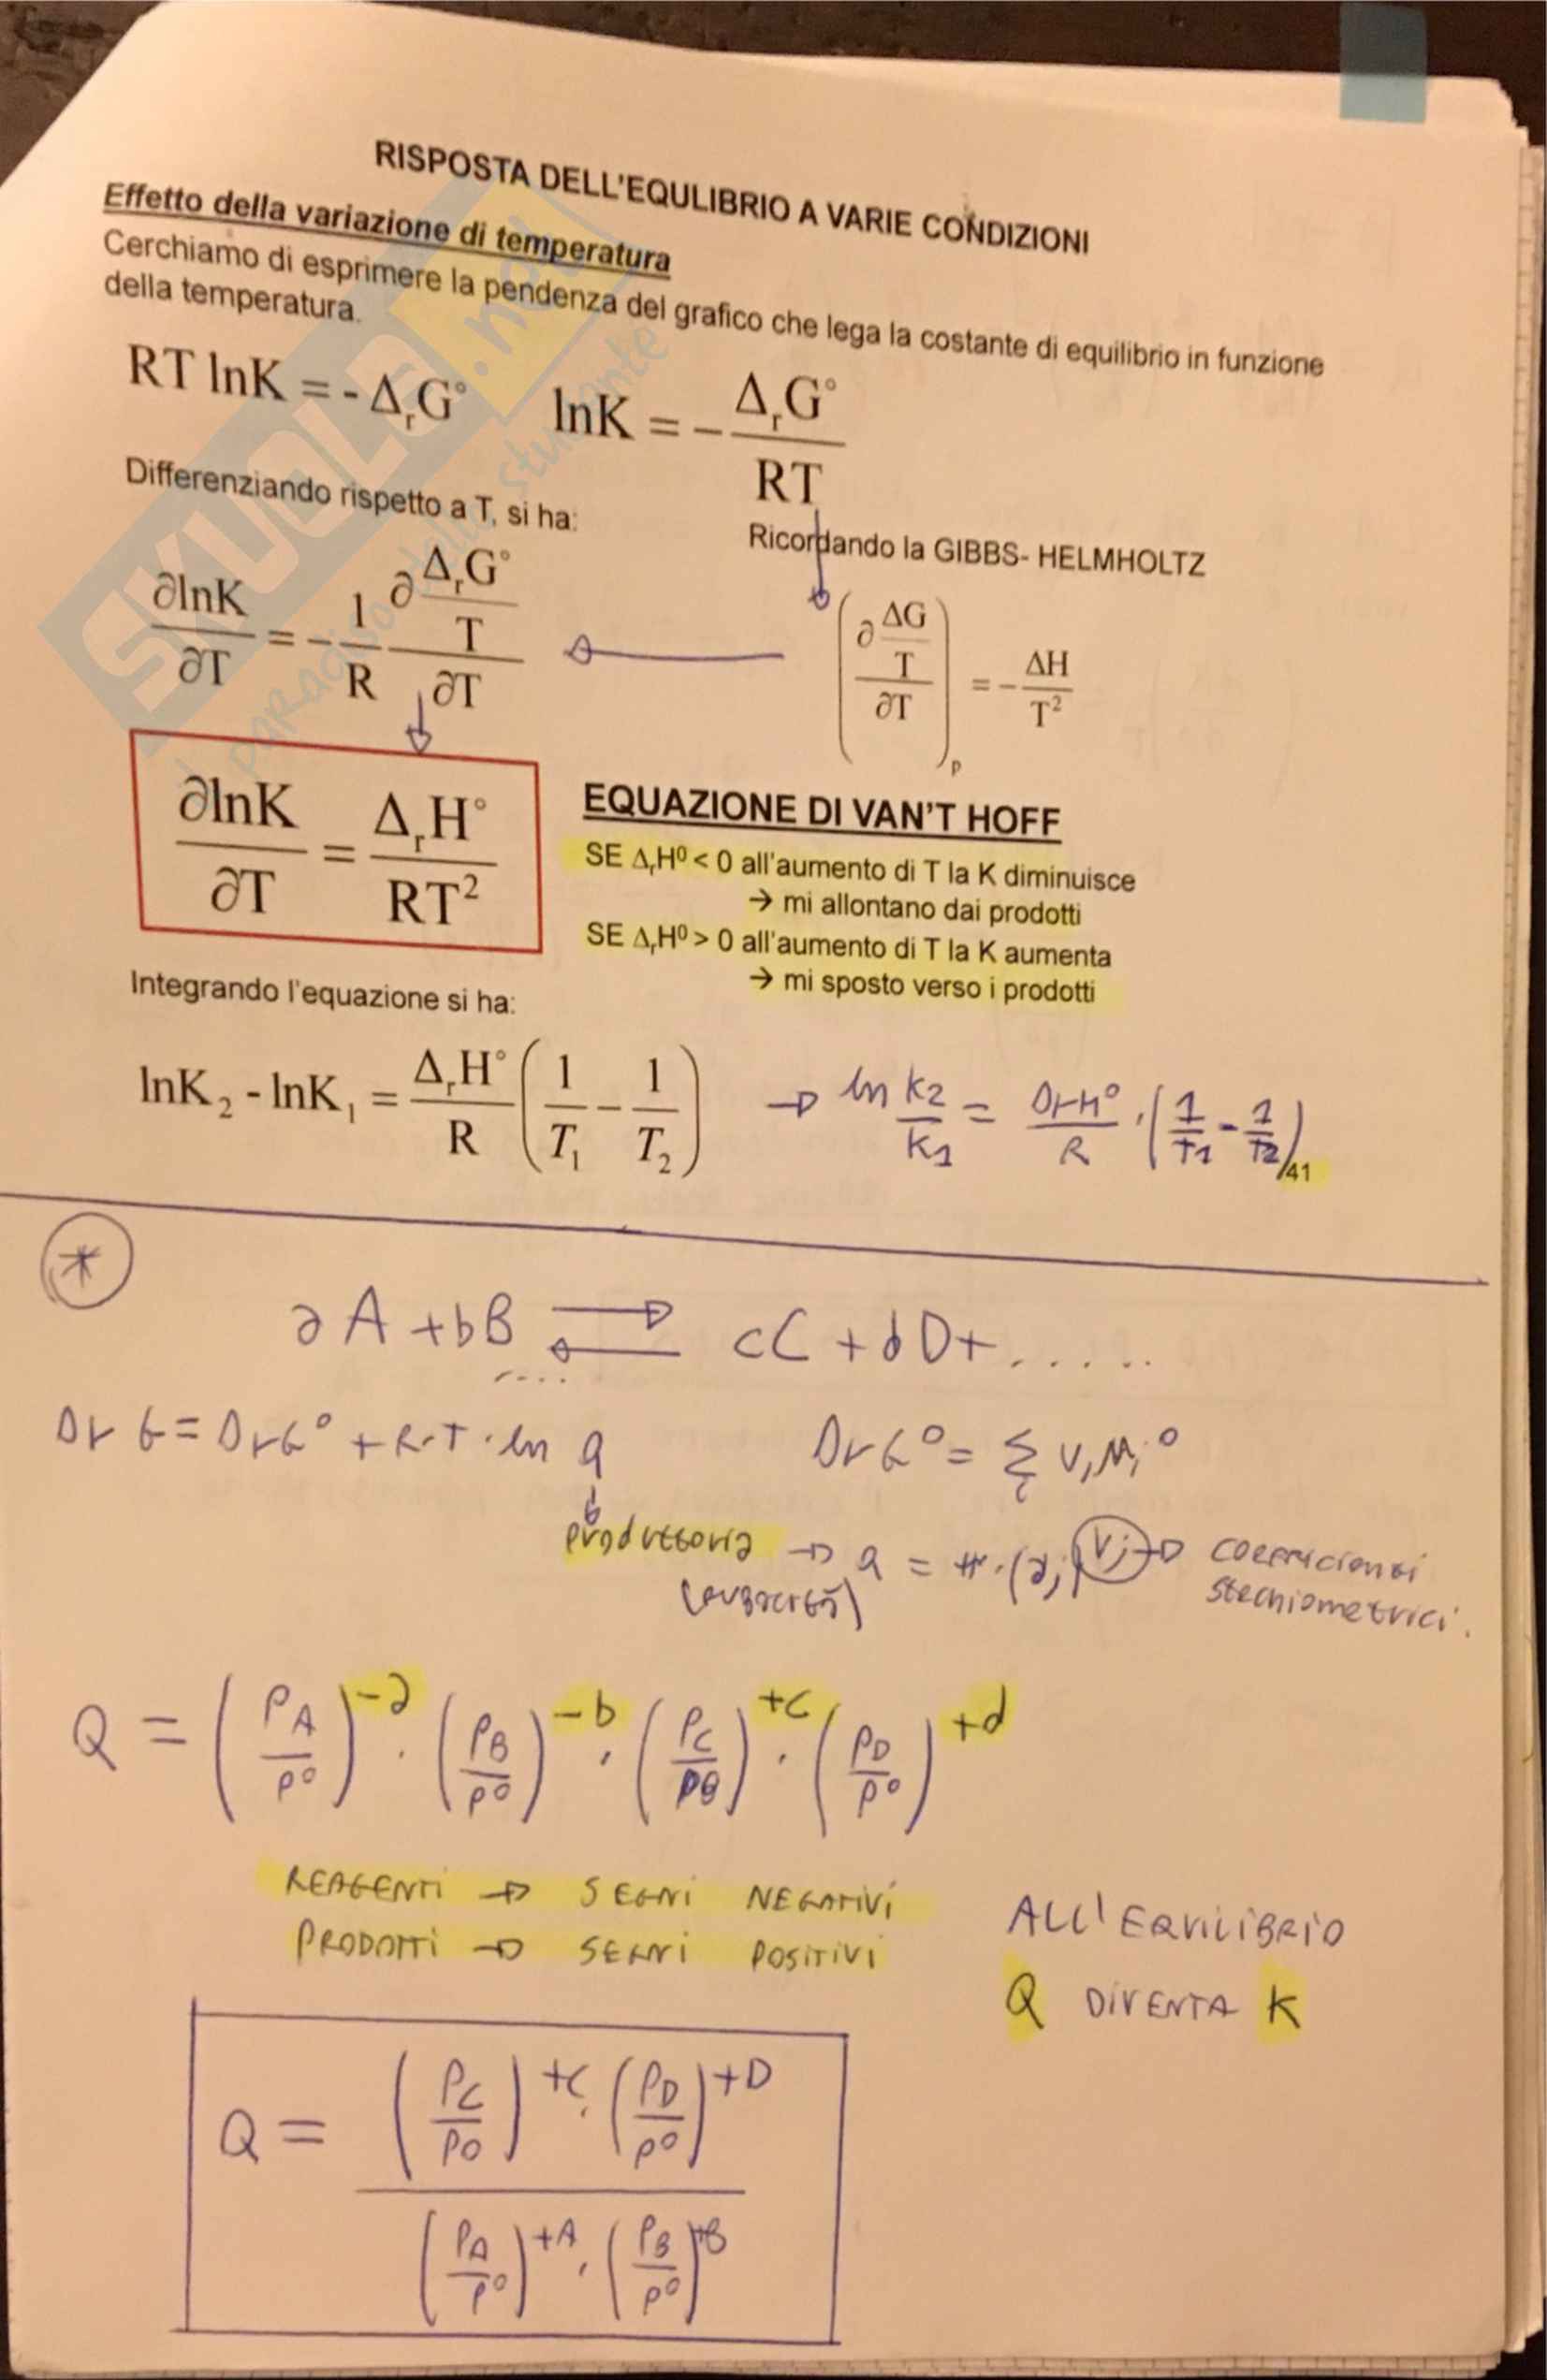 RISPOSTA DELL'EQULIBRIO A VARIE CONDIZIONI
Effetto della variazione di temperatura
Cerchiamo di esprimere la pendenza del grafico che lega la costante di equilibrio in funzione
della temperatura.
RT lnK = - ΔrG° lnK = - ΔrG° / RT
Differenziando rispetto a T, si ha:
Ricordando la GIBBS- HELMHOLTZ
∂lnK / ∂T = - 1/R ∂(ΔrG° / T) / ∂T ← (∂(ΔG / T) / ∂T)p = - ΔH / T²
∂lnK / ∂T = ΔrH° / RT²
EQUAZIONE DI VAN'T HOFF
SE ΔrH⁰ < 0 all'aumento di T la K diminuisce
→ mi allontano dai prodotti
SE ΔrH⁰ > 0 all'aumento di T la K aumenta
→ mi sposto verso i prodotti
Integrando l'equazione si ha:
lnK₂ - lnK₁ = ΔrH° / R (1/T₁ - 1/T₂) → ln K2/K1 = ΔrH° / R · (1/T1 - 1/T2)
41
*
aA + bB ⇄ cC + dD + .....
....
ΔrG = ΔrG° + R·T·ln q ΔrG° = Σ νi μi°
produttoria → q = π·(ai)^νi → coefficienti
stechiometrici.
Q = (PA/P°)^-a · (PB/P°)^-b · (PC/P°)^+c · (PD/P°)^+d
REAGENTI → SEGNI NEGATIVI
PRODOTTI → SEGNI POSITIVI
ALL'EQUILIBRIO
Q DIVENTA K
Q = (PC/P°)^+C · (PD/P°)^+D / (PA/P°)^+A · (PB/P°)^+B
SKUOLA.net
il paradiso dello studente